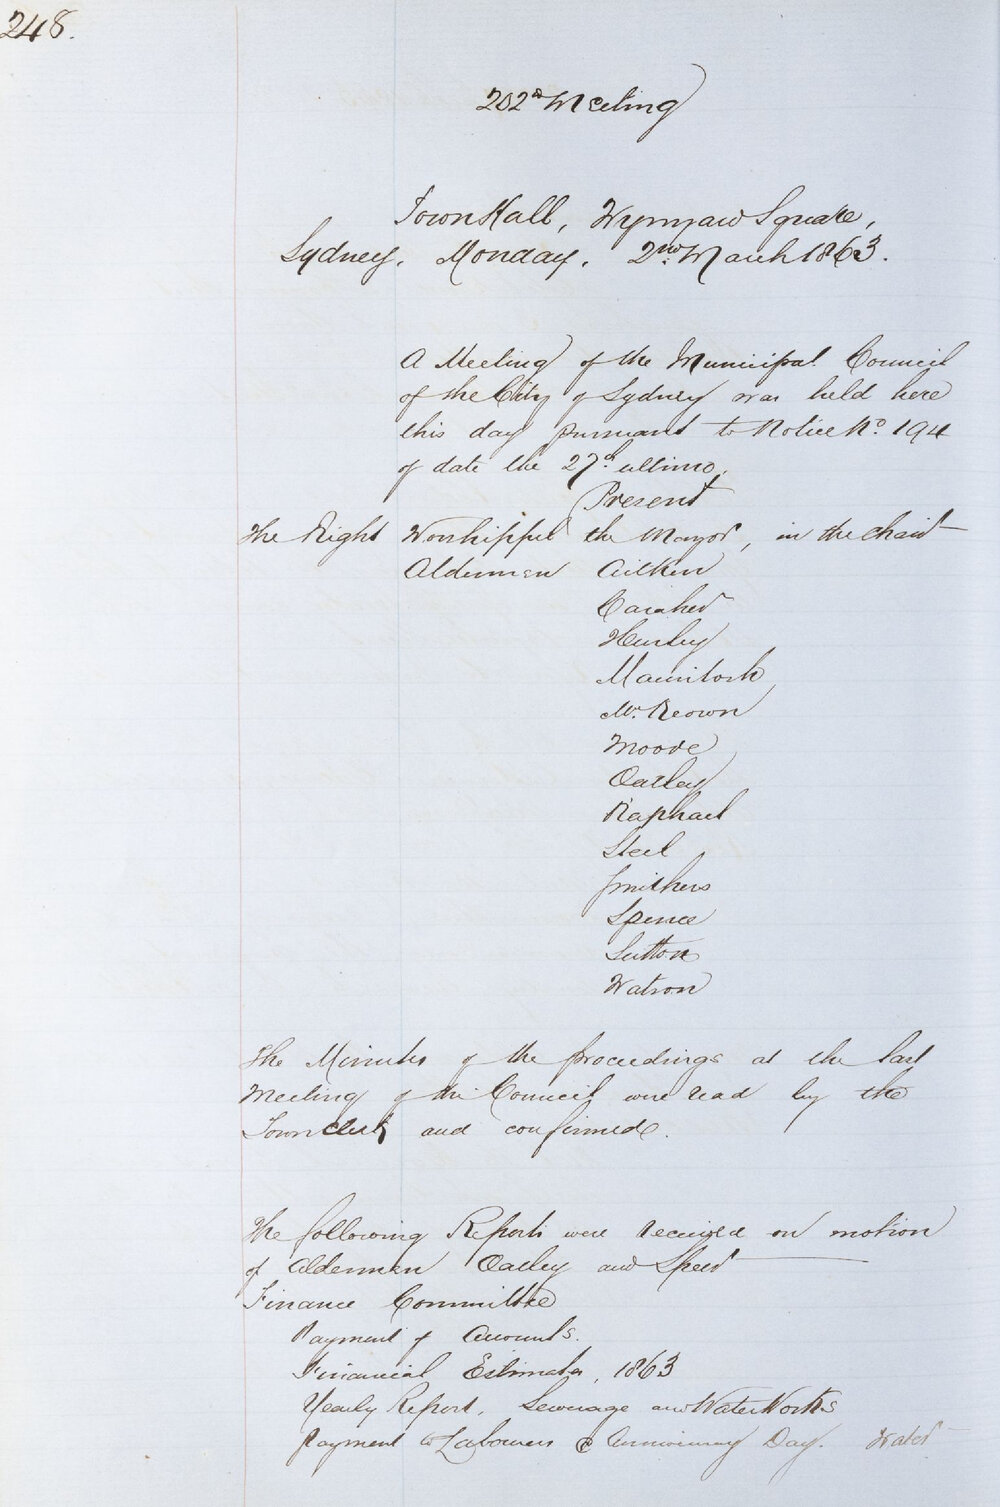 248.
202d Meeting
Town Hall, Wynyard Square,
Sydney, Monday, 2nd March 1863.
A Meeting of the Municipal Council
of the City of Sydney was held here
this day pursuant to Notice No. 194
of date the 27th ultimo.
Present
The Right Worshipful the Mayor, in the chair
Aldermen Aitken
Caraher
Hurley
Macintosh
McKeown
Moore
Oatley
Raphael
Steel
Smithers
Spence
Sutton
Watson
The Minutes of the proceedings at the last
Meeting of the Council were read by the
Town Clerk and confirmed.
The following Reports were received on motion
of Aldermen Oatley and
Finance Committee
Payment of Accounts.
Financial Estimates, 1863
Yearly Report, Sewerage and Water Works
Payment to Labourers @ Anniversary Day. Water